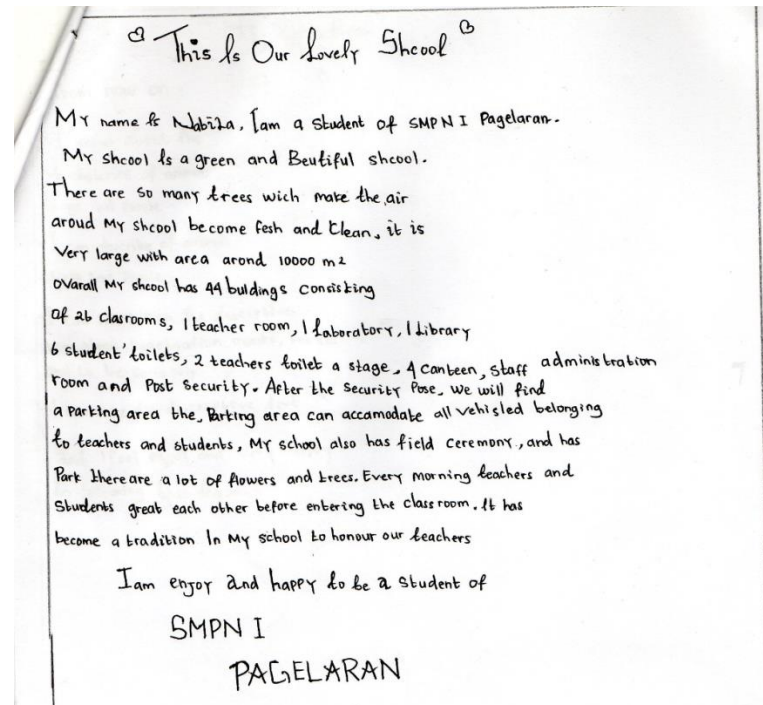 This Is Our Lovely Shcool
My name Is Nabila, Iam a student of SMPN I Pagelaran.
My shcool Is a green and Beutiful shcool.
There are so many trees wich make the air
aroud My shcool become fesh and Clean, it is
Very large with area arond 10000 m2
ovarall My shcool has 44 buldings consisting
of 26 clasrooms, 1 teacher room, 1 Laboratory, 1 Library
6 student' toilets, 2 teachers toilet a stage, 4 canteen, staff administration
room and Post Security. After the Security Pose, we will find
a Parking area the, Parking area can accamodate all vehisled belonging
to teachers and students, My school also has field ceremony, and has
Park there are a lot of flowers and trees. Every morning teachers and
Students great each other before entering the class room. It has
become a tradition In My school to honour our teachers
Iam enjoy and happy to be a student of
SMPN I
PAGELARAN